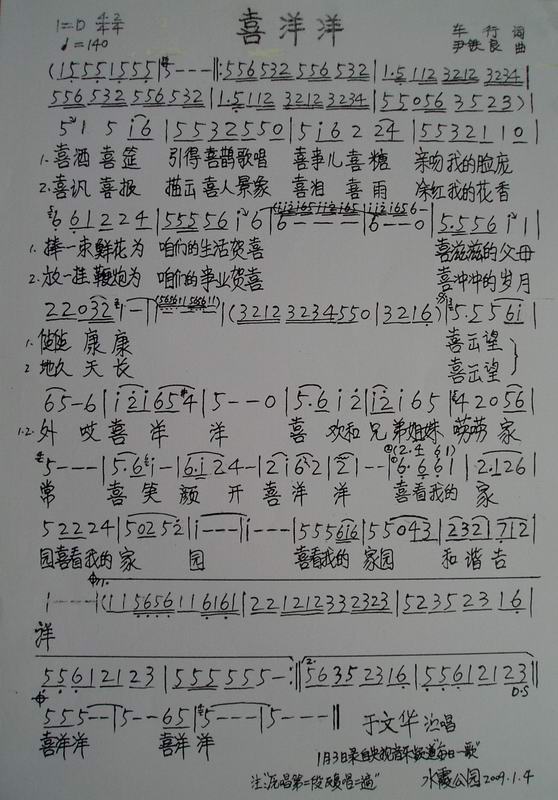 1=D 4/4 2/4
喜洋洋
♩=140
车行 词
尹铁良 曲
(15551555|5---‖:556532 556532|1·5112 3212 3234|
556532 556532|1·5112 3212 3234|55056 3523)|
51 5 i6|55532550|5i62 24|5532110|
1.喜酒喜筵 引得喜鹊歌唱 喜事儿喜糖 亲吻我的脸庞
2.喜讯喜报 描云喜人景象 喜泪喜雨 冻红我的花香
1.捧一束鲜花为 咱们的生活贺喜 喜滋滋的父母
2.放一挂鞭炮为 咱们的事业贺喜 喜冲冲的岁月
22032 1-|(3212 3234550|3216)|5.55 6i|
1. 健健康康 喜云望
2 地久天长 喜云望
65-6|i2i654|5--0|5.6i2|i2i65|42056|
1.2.外哎喜洋洋 喜欢和兄弟姐妹 唠唠家
常 喜笑颜开喜洋洋 喜看我的家
52224|50252|i---|i---|555616|55043|2321 712|
园喜看我的家园 喜看我的家园 和谐吉
1---|(11 5656 11 6161|22 1212 33 2323|5235231 6|
洋
5561 2123|555555-:‖56352316|55612123
D·S
555--|5--65|5---|5---‖
喜洋洋 喜洋洋
于文华 演唱
1月3日录自央视音乐频道"每日一歌"
注:演唱第二段反复唱二遍"
水霞公园2009.1.4